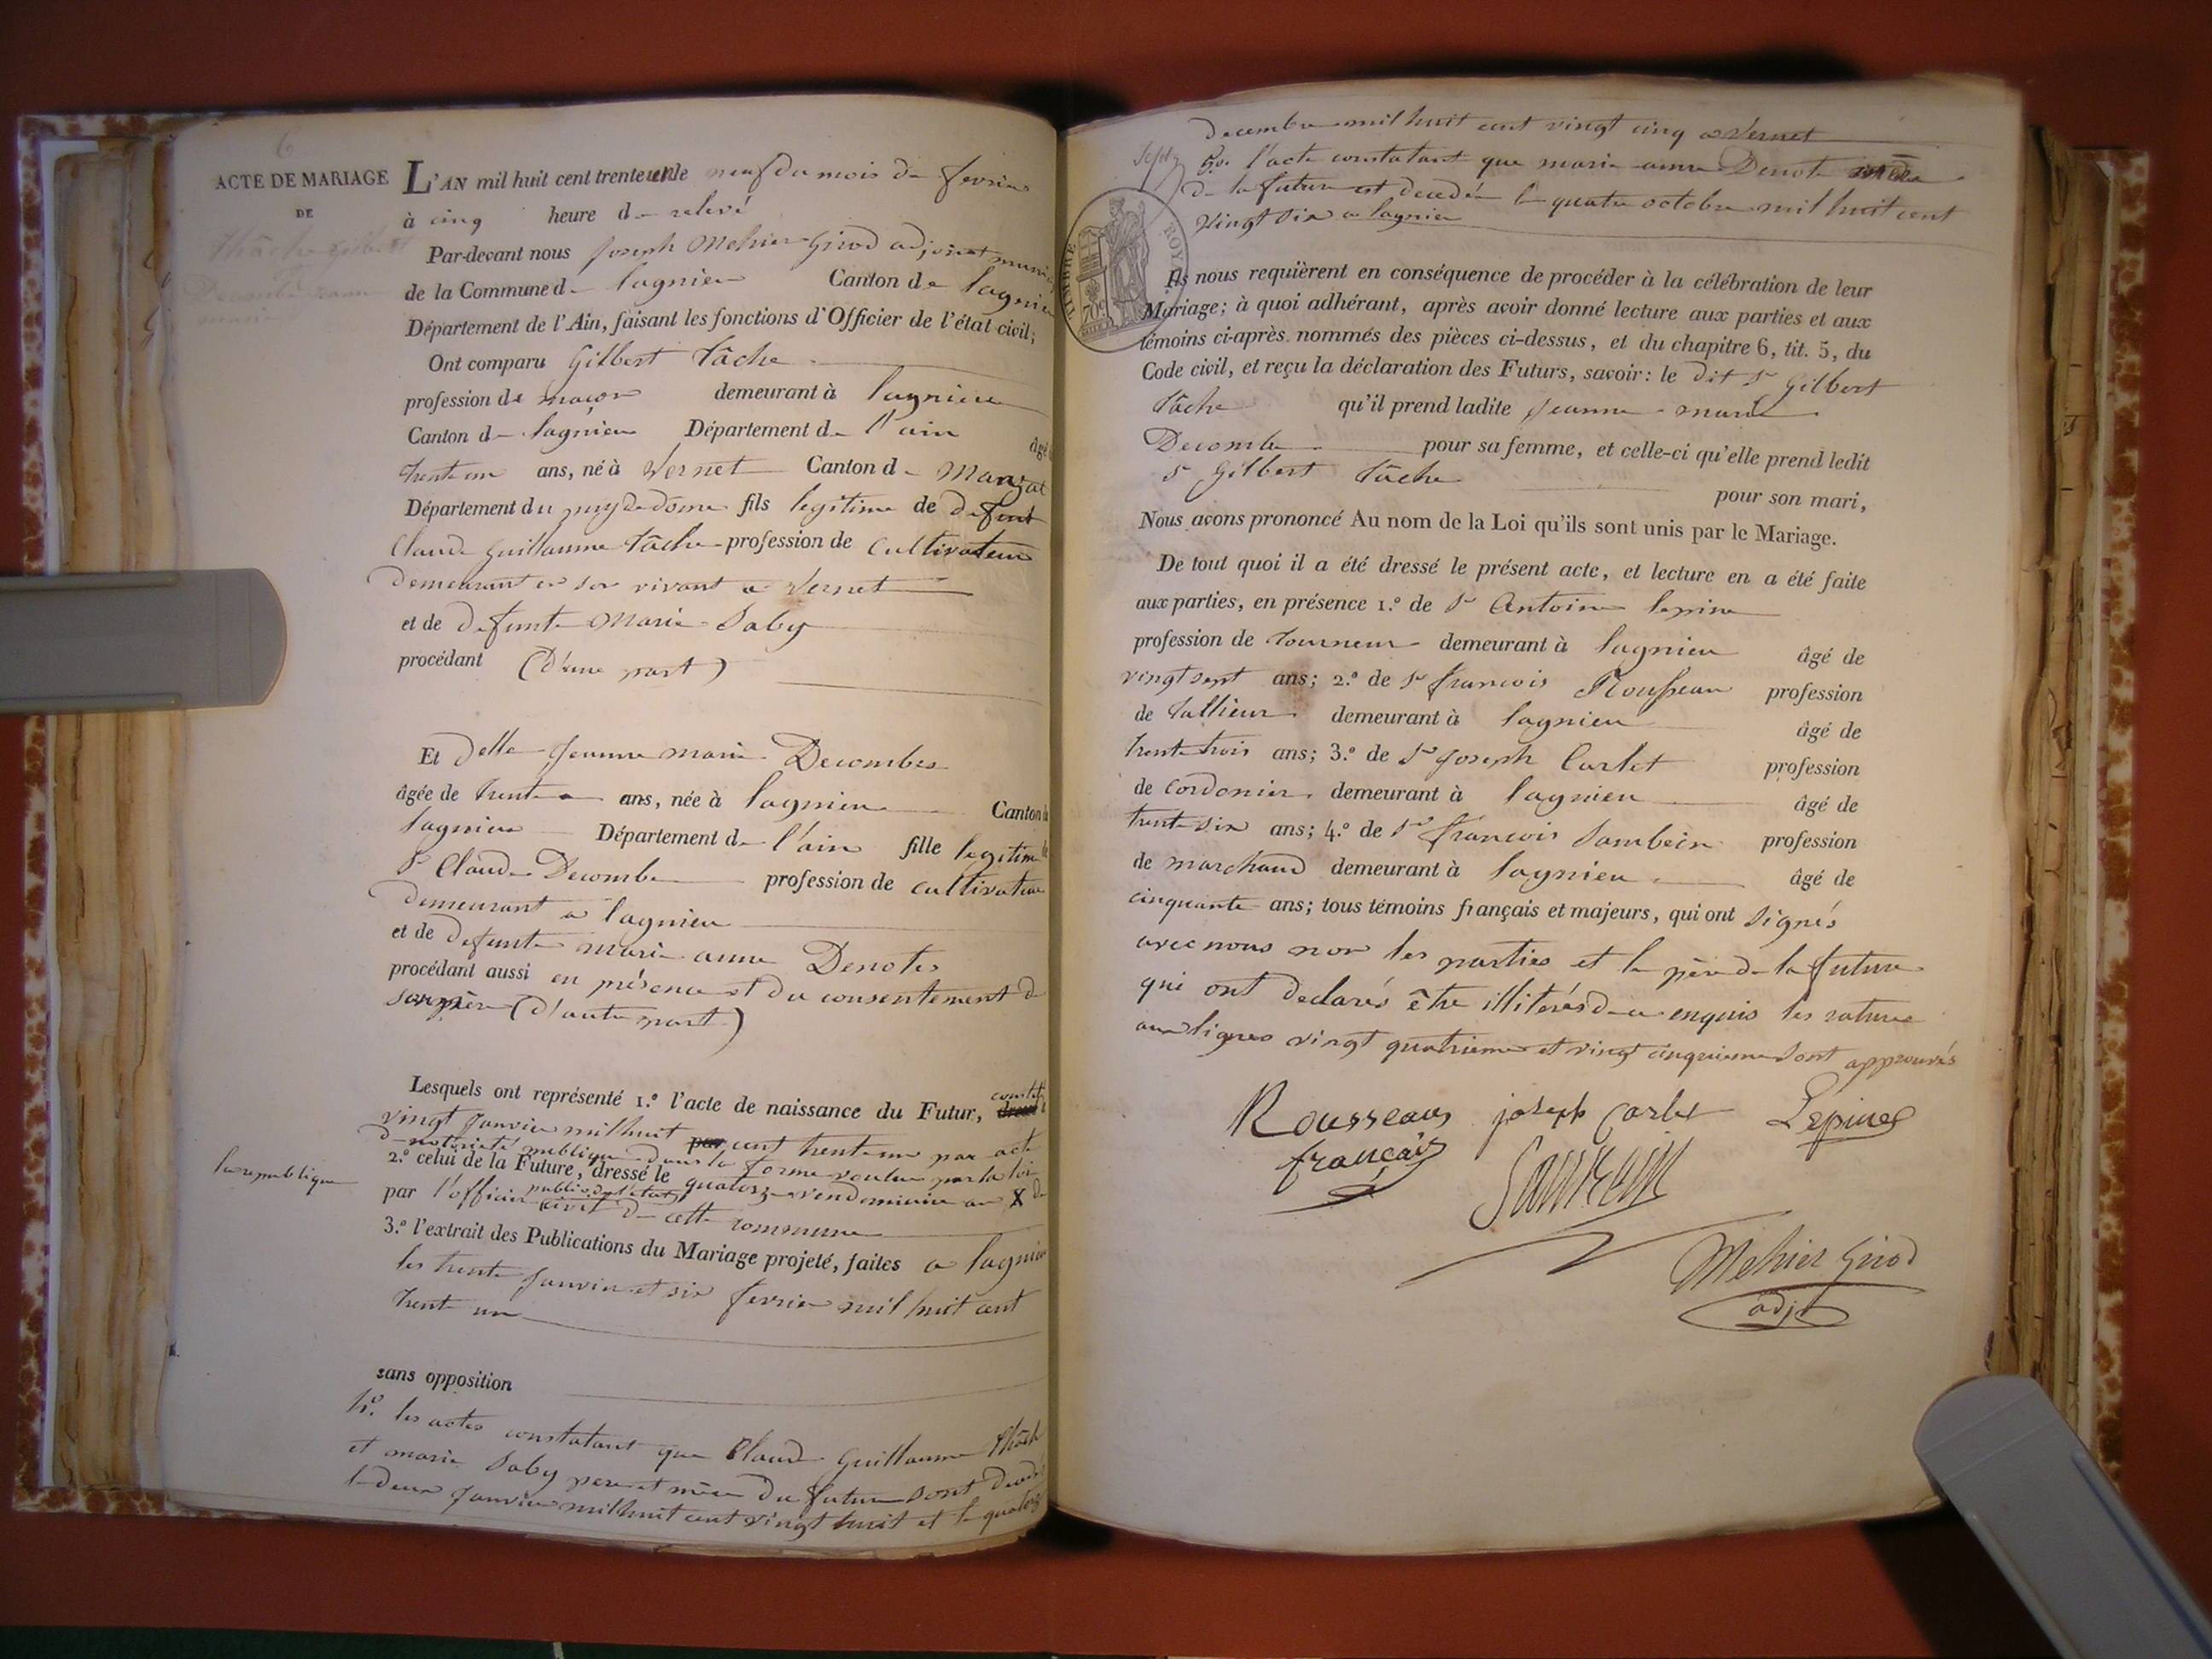 6
ACTE DE MARIAGE
DE
L'AN mil huit cent trente un le neuf du mois de fevrier
à cinq heure de relevé
Par-devant nous Joseph Mehier Girod adjoint
de la Commune de Lagnieu Canton de Lagnieu
Département de l'Ain, faisant les fonctions d'Officier de l'état civil;
Ont comparu Gilbert Tâche
profession de maçon demeurant à Lagnieu
Canton de Lagnieu Département de l'ain âgé
trente un ans, né à Vernet Canton de Manzat
Département du puy de dome fils legitime de defunt
Claude Guillaume Tâche profession de cultivateur
demeurant en son vivant a Vernet
et de defunte Marie Saby
procédant (d'une part)
Et delle Jeanne marie Decombes
âgée de trente ans, née à lagnieu Canton de
lagnieu Département de l'ain fille legitime de
Sr Claude Decombe profession de cultivateur
demeurant a lagnieu
et de defunte marie anne Denotes
procédant aussi en présence et du consentement de
son père (d'autre part)
Lesquels ont représenté 1.º l'acte de naissance du Futur,
vingt Janvier mil huit cent trente un par acte
de notorieté publique dans la forme voulue par la loi
2.º celui de la Future, dressé le quatorze vendemiaire an X de
la republique
par l'officier public de l'état civil de cette commune
3.º l'extrait des Publications du Mariage projeté, faites a lagnieu
les trente Janvier et six fevrier mil huit cent
trente un
sans opposition
4º. les actes constatant que Claude Guillaume Thâche
et marie Saby pere et mère du futur sont decedés
le deux Janvier mil huit cent vingt huit et le quatorze
decembre mil huit cent vingt cinq a Vernet
5º. l'acte constatant que marie anne Denote mère
de la future est decedée le quatre octobre mil huit cent
vingt six a lagnieu
TIMBRE ROYAL
70c
Ils nous requièrent en conséquence de procéder à la célébration de leur
Mariage; à quoi adhérant, après avoir donné lecture aux parties et aux
témoins ci-après nommés des pièces ci-dessus, et du chapitre 6, tit. 5, du
Code civil, et reçu la déclaration des Futurs, savoir: le dit Sr Gilbert
Tâche qu'il prend ladite Jeanne marie
Decombe pour sa femme, et celle-ci qu'elle prend ledit
Sr Gilbert Tâche pour son mari,
Nous avons prononcé Au nom de la Loi qu'ils sont unis par le Mariage.
De tout quoi il a été dressé le présent acte, et lecture en a été faite
aux parties, en présence 1.º de Sr Antoine lepine
profession de tourneur demeurant à lagnieu âgé de
vingt sept ans; 2.º de Sr francois Rousseau profession
de tallieur demeurant à lagnieu âgé de
trente trois ans; 3.º de Sr Joseph Carlet profession
de cordonier demeurant à lagnieu âgé de
trente six ans; 4.º de Sr francois Sambein profession
de marchand demeurant à lagnieu âgé de
cinquante ans; tous témoins français et majeurs, qui ont signés
avec nous non les parties et le père de la future
qui ont declarés être illiterés de ce enquis les rature
aux lignes vingt quatrieme et vingt cinquieme sont approuvés
Rousseau joseph Carlet Lépine
francais
Mehier Girod
adjt